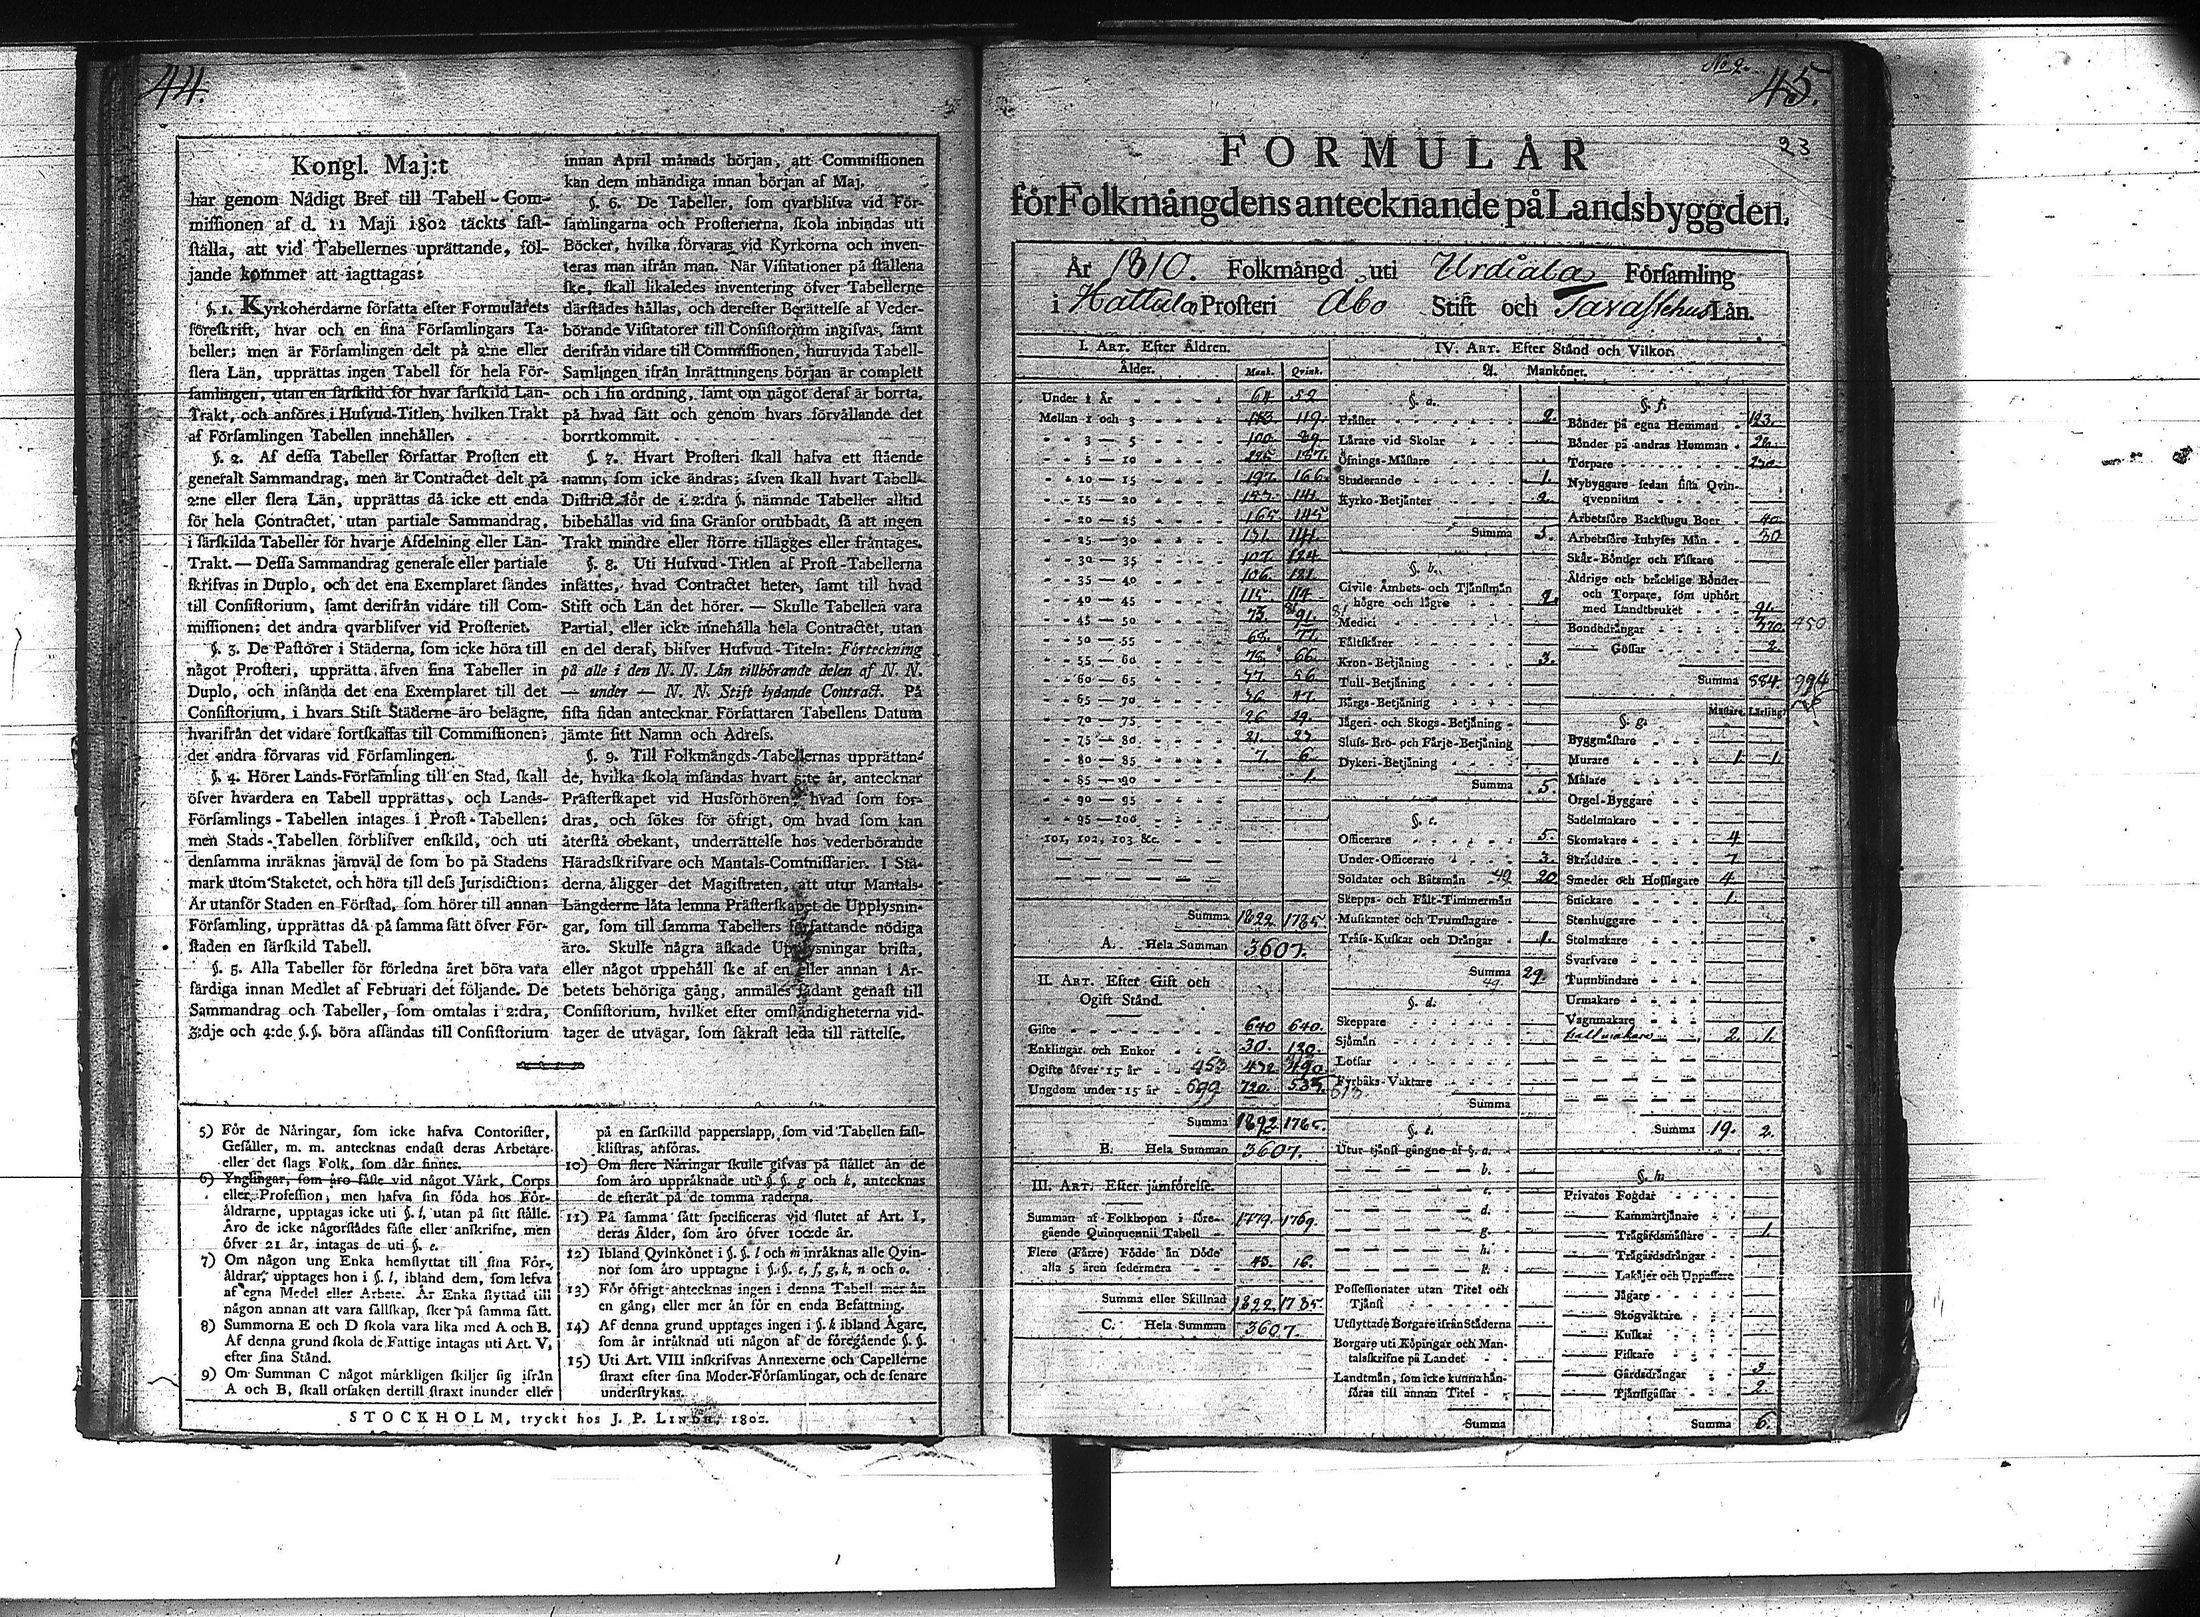 44.
Kongl. Maj:t
har genom Nådigt Bref till Tabell-Com-
missionen af d. 11 Maji 1802 täckts fast-
ställa, att vid Tabellernes uprättande, föl-
jande kommer att iagttagas:
§. 1. Kyrkoherdarne författa efter Formulärets
föreskrift, hvar och en sina Församlingars Ta-
beller; men är Församlingen delt på 2:ne eller
flera Län, upprättas ingen Tabell för hela För-
samlingen, utan en särskild för hvar särskild Län-
Trakt, och anföres i Hufvud-Titlen, hvilken Trakt
af Församlingen Tabellen innehåller.
§. 2. Af dessa Tabeller författar Prosten ett
generalt Sammandrag, men är Contractet delt på
2:ne eller flera Län, upprättas då icke ett enda
för hela Contractet, utan partiale Sammandrag,
i särskilda Tabeller för hvarje Afdelning eller Län-
Trakt. — Dessa Sammandrag generale eller partiale
skrifvas in Duplo, och det ena Exemplaret sändes
till Consistorium, samt derifrån vidare till Com-
missionen; det andra qvarblifver vid Prosteriet.
§. 3. De Pastorer i Städerna, som icke höra till
något Prosteri, upprätta äfven sina Tabeller in
Duplo, och insända det ena Exemplaret till det
Consistorium, i hvars Stift Städerne äro belägne,
hvarifrån det vidare fortskaffas till Commissionen;
det andra förvaras vid Församlingen.
§. 4. Hörer Lands-Församling till en Stad, skall
öfver hvardera en Tabell upprättas, och Lands-
Församlings-Tabellen intages i Prost-Tabellen;
men Stads-Tabellen förblifver enskild, och uti
densamma inräknas jämväl de som bo på Stadens
mark utom Staketet, och höra till dess Jurisdiction;
Är utanför Staden en Förstad, som hörer till annan
Församling, upprättas då på samma sätt öfver För-
staden en särskild Tabell.
§. 5. Alla Tabeller för förledna året böra vara
färdiga innan Medlet af Februari det följande. De
Sammandrag och Tabeller, som omtalas i 2:dra,
3:dje och 4:de §.§. böra afsändas till Consistorium
innan April månads början, att Commissionen
kan dem inhändiga innan början af Maj.
§. 6. De Tabeller, som qvarblifva vid För-
samlingarna och Prosterierna, skola inbindas uti
Böcker, hvilka förvaras vid Kyrkorna och inven-
teras man ifrån man. När Visitationer på ställena
ske, skall likaledes inventering öfver Tabellerne
därstädes hållas, och derefter Berättelse af Veder-
börande Visitatorer till Consistorium ingifvas, samt
derifrån vidare till Commissionen, huruvida Tabell-
Samlingen ifrån Inrättningens början är complett
och i sin ordning, samt om något deraf är borrta,
på hvad sätt och genom hvars förvållande det
borrtkommit.
§. 7. Hvart Prosteri skall hafva ett stående
namn, som icke ändras; äfven skall hvart Tabell-
District för de i 2:dra §. nämnde Tabeller alltid
bibehållas vid sina Gränsor orubbadt, så att ingen
Trakt mindre eller större tillägges eller fråntages.
§. 8. Uti Hufvud-Titlen af Prost-Tabellerna
insättes, hvad Contractet heter, samt till hvad
Stift och Län det hörer. — Skulle Tabellen vara
Partial, eller icke innehålla hela Contractet, utan
en del deraf, blifver Hufvud-Titeln: Förteckning
på alle i den N. N. Län tillhörande delen af N. N.
— under — N. N. Stift lydande Contract. På
sista sidan antecknar Författaren Tabellens Datum
jämte sitt Namn och Adress.
§. 9. Till Folkmängds-Tabellernas upprättan-
de, hvilka skola insändas hvart 5:te år, antecknar
Prästerskapet vid Husförhören, hvad som for-
dras, och sökes för öfrigt, om hvad som kan
återstå obekant, underrättelse hos vederbörande
Häradsskrifvare och Mantals-Commissarier. I Stä-
derna åligger det Magistraten, att utur Mantals-
Längderne låta lemna Prästerskapet de Upplysnin-
gar, som till samma Tabellers författande nödiga
äro. Skulle några äskade Upplysningar brista,
eller något uppehåll ske af en eller annan i Ar-
betets behöriga gång, anmäles sådant genast till
Consistorium, hvilket efter omständigheterna vid-
tager de utvägar, som säkrast leda till rättelse.
5) För de Näringar, som icke hafva Contorister,
Gesäller, m. m. antecknas endast deras Arbetare
eller det slags Folk, som där finnes.
6) Ynglingar, som äro fäste vid något Värk, Corps
eller Profession, men hafva sin föda hos För-
äldrarne, upptagas icke uti §. l, utan på sitt ställe.
Äro de icke någorstädes fäste eller anskrifne, men
öfver 21 år, intagas de uti §. e.
7) Om någon ung Enka hemflyttat till sina För-
äldrar, upptages hon i §. l, ibland dem, som lefva
af egna Medel eller Arbete. Är Enka flyttad till
någon annan att vara sällskap, sker på samma sätt.
8) Summorna E och D skola vara lika med A och B.
Af denna grund skola de Fattige intagas uti Art. V,
efter sina Stånd.
9) Om Summan C något märkligen skiljer sig ifrån
A och B, skall orsaken dertill straxt inunder eller
på en särskilld papperslapp, som vid Tabellen fast-
klistras, anföras.
10) Om flere Näringar skulle gifvas på stället än de
som äro uppräknade uti §.§. g och k, antecknas
de efteråt på de tomma raderna.
11) På samma sätt specificeras vid slutet af Art. I,
deras Ålder, som äro öfver 100:de år.
12) Ibland Qvinkönet i §.§. l och m inräknas alle Qvin-
nor som äro upptagne i §.§. e, f, g, k, n och o.
13) För öfrigt antecknas ingen i denna Tabell mer än
en gång, eller mer än för en enda Befattning.
14) Af denna grund upptages ingen i §. k ibland Ägare,
som är inräknad uti någon af de föregående §.§.
15) Uti Art. VIII inskrifvas Annexerne och Capellerne
straxt efter sina Moder-Församlingar, och de senare
understrykas.
STOCKHOLM, tryckt hos J. P. LINDH, 1802.
No 2.
45.
23
FORMULÄR
för Folkmängdens antecknande på Landsbyggden.
År 1810. Folkmängd uti Urdiala Församling
i Hattula Prosteri Åbo Stift och Tavastehus Län.
I. ART. Efter Åldren.
Ålder. Mank. Qvink.
Under 1 År 64 52
Mellan 1 och 3 119.
3 — 5 100. 89.
5 — 10 187.
10 — 15 197. 166.
15 — 20 141.
20 — 25 165 145
25 — 30 151. 141.
30 — 35 107. 124
35 — 40 106. 121.
40 — 45 115. 114
45 — 50 91.
50 — 55 68. 77.
55 — 60 78. 66.
60 — 65 56.
65 — 70 36 47.
70 — 75 26 29.
75 — 80 21. 23
80 — 85 7. 6
85 — 90 1.
90 — 95
95 — 100
101, 102, 103 &c.
Summa 1822. 1785.
A. Hela Summan 3607.
II. ART. Efter Gift och
Ogift Stånd.
Gifte 640 640.
Enklingar och Enkor 30. 130.
Ogifte öfver 15 år 453
Ungdom under 15 år 699 720.
Summa 1822 1785.
B. Hela Summan 3607.
III. ART. Efter jämförelse.
Summan af Folkhopen i före-
gående Quinquennii Tabell 1779. 1769.
Flere (Färre) Födde än Döde
alla 5 åren sedermera 43. 16.
Summa eller Skillnad 1822. 1785.
C. Hela Summan 3607.
IV. ART. Efter Stånd och Vilkor.
A. Mankönet.
§. a.
Präster 2.
Lärare vid Skolar
Öfnings-Mästare
Studerande 1.
Kyrko-Betjänter 2.
Summa 5.
§. b.
Civile Ämbets- och Tjänstmän
högre och lägre 2.
Medici
Fältskärer
Kron-Betjäning 3.
Tull-Betjäning
Bärgs-Betjäning
Jägeri- och Skogs-Betjäning
Sluss- Bro- och Färje-Betjäning
Dykeri-Betjäning
Summa 5.
§. c.
Officerare 5.
Under-Officerare 3.
Soldater och Båtsmän 40 20
Skepps- och Fält-Timmermän
Musikanter och Trumslagare
Träss-Kuskar och Drängar 1.
Summa 29.
49
§. d.
Skeppare
Sjömän
Lotsar
Fyrbåks-Vaktare
513
Summa
§. e.
Utur tjänst gångne af §. a.
b.
c.
d.
g.
h.
Possessionater utan Titel och
Tjänst
Utflyttade Borgare ifrån Städerna
Borgare uti Köpingar och Man-
talsskrifne på Landet
Landtmän, som icke kunna hän-
föras till annan Titel
Summa
§. f.
Bönder på egna Hemman 123.
Bönder på andras Hemman 26.
Torpare 230.
Nybyggare sedan sista Qvin-
qvennium
Arbetsföre Backstugu Boer 40.
Arbetsföre Inhyses Män 30
Skär-Bönder och Fiskare
Äldrige och bräcklige Bönder
och Torpare, som uphört
med Landtbruket 91.
Bondedrängar 370. 450
— Gossar 2.
Summa 884. 994
§. g. Mästare. Lärling.
Byggmästare
Murare 1. 1.
Målare
Orgel-Byggare
Sadelmakare
Skomakare 4.
Skräddare 7.
Smeder och Hofslagare 4.
Snickare 1.
Stenhuggare
Stolmakare
Svarfvare
Tunnbindare
Urmakare
Vagnmakare
2. 1.
Summa 19. 2.
§. h.
Privates Fogdar
— Kammartjänare
— Trägårdsmästare 1.
— Trägårdsdrängar
— Lakäjer och Uppassare
— Jägare
— Skogvaktare
— Kuskar
— Fiskare
— Gårdsdrängar 3
— Tjänstgossar 2.
Summa 6.